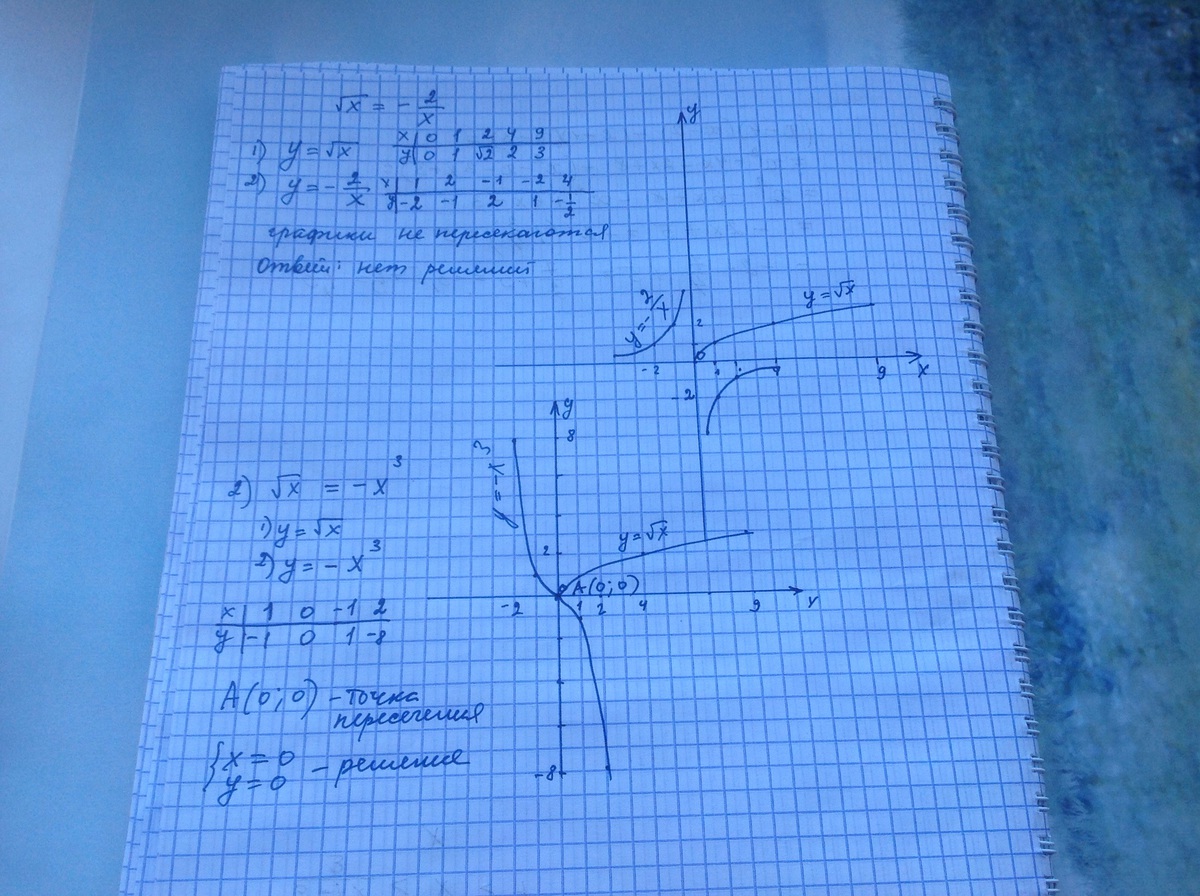 √x = - 2/x
1) y = √x
x | 0 1 2 4 9
y | 0 1 √2 2 3
2) y = - 2/x
x | 1 2 -1 -2 4
y | -2 -1 2 1 -1/2
графики не пересекаются
Ответ: нет решений
y
y = - 2/x
y = √x
2
0
-2
1
4
9
x
-2
2) √x = - x³
1) y = √x
2) y = - x³
x | 1 0 -1 2
y | -1 0 1 -8
A(0; 0) - точка
пересечения
{ x = 0
y = 0 - решение
y
8
y = -x³
y = √x
2
A(0; 0)
-2
1
2
4
9
x
-8